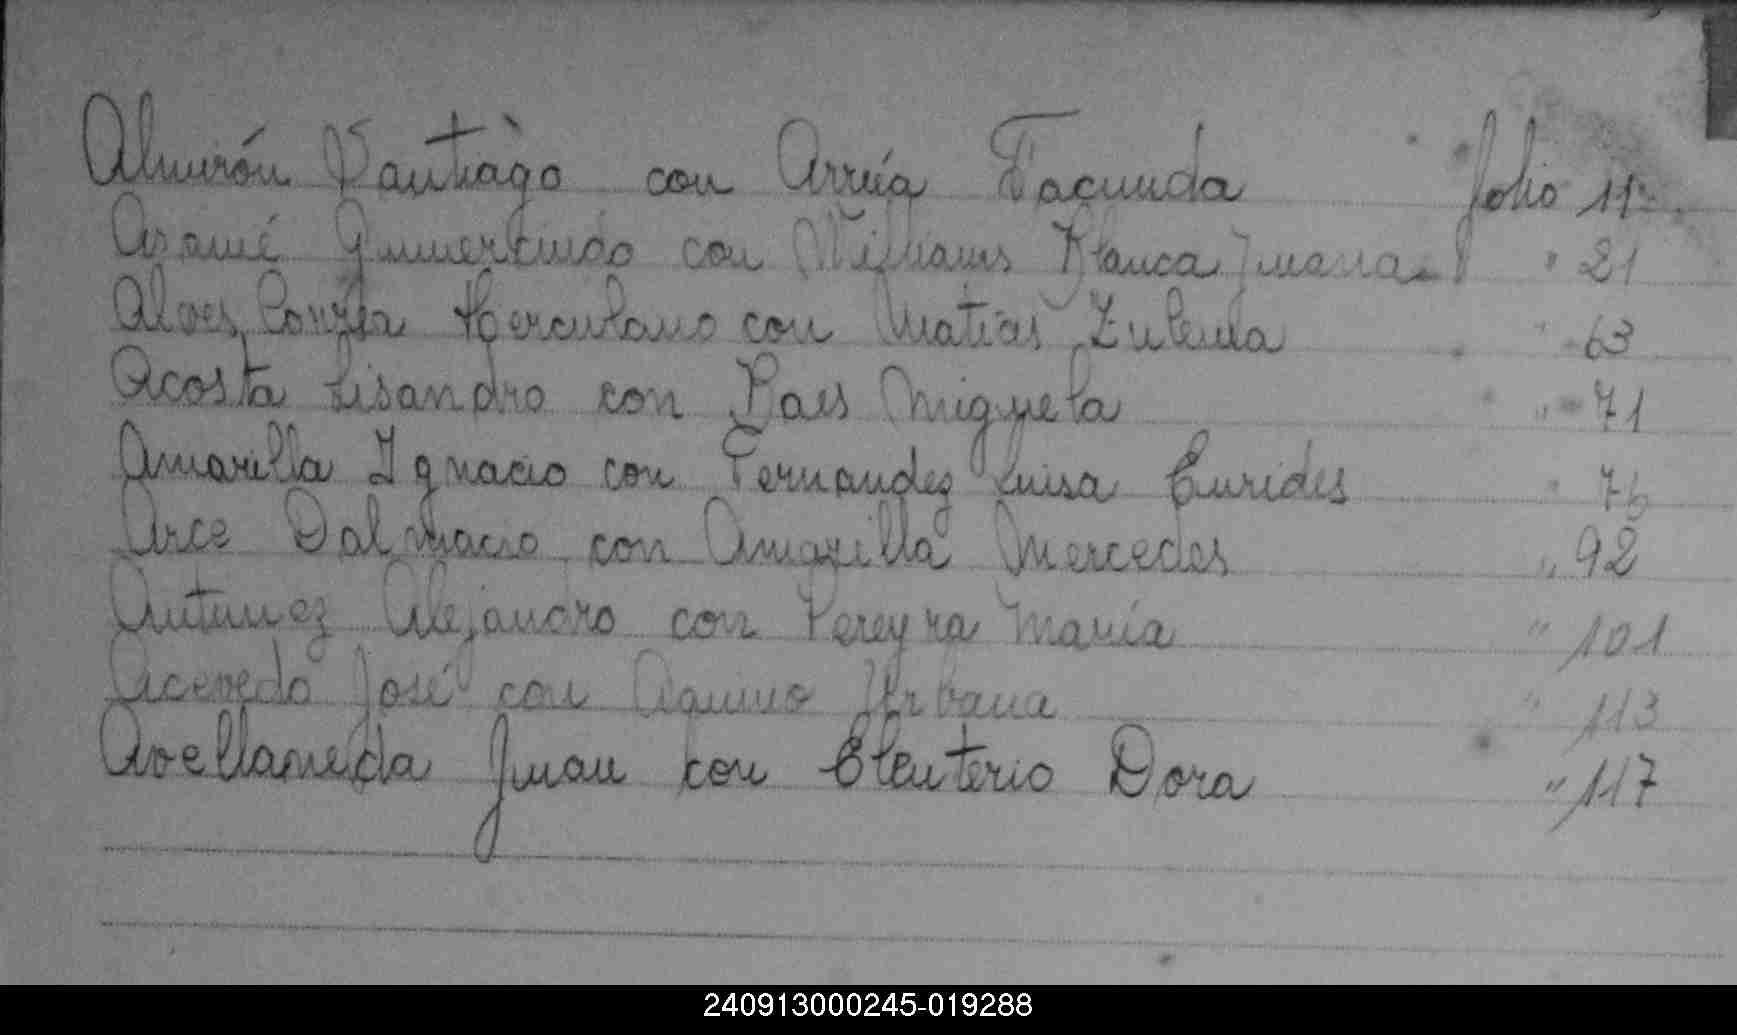 Almirón Santiago con Arrúa Facunda folio 11
Asamé Gumercindo con Williams Blanca Juana " 21
Alves Corrêa Herculano con Matías Zulema " 63
Acosta Lisandro con Paes Miguela " 71
Amarilla Ignacio con Fernandez Luisa Eurides " 76
Arce Dalmacio con Amarilla Mercedes " 92
Antunez Alejandro con Pereyra María " 101
Acevedo José con Aquino Urbana " 113
Avellaneda Juan con Eleuterio Dora " 117
240913000245-019288